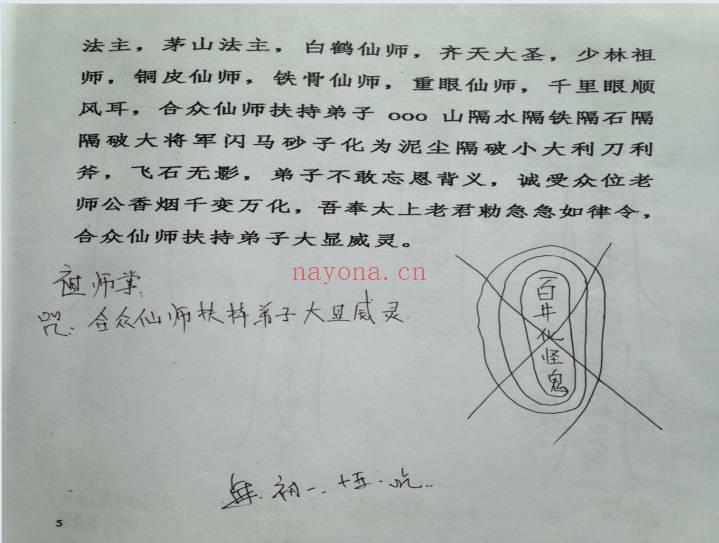 法主，茅山法主，白鹤仙师，齐天大圣，少林祖
师，铜皮仙师，铁骨仙师，重眼仙师，千里眼顺
风耳，合众仙师扶持弟子 ooo 山隔水隔铁隔石隔
隔破大将军闪马砂子化为泥尘隔破小大利刀利
斧，飞石无影，弟子不敢忘恩背义，诚受众位老
师公香烟千变万化，吾奉太上老君勅急急如律令，
合众仙师扶持弟子大显威灵。
祖师掌
咒：合众仙师扶持弟子大显威灵
nayona.cn
百井化怪鬼
初一、十五
5